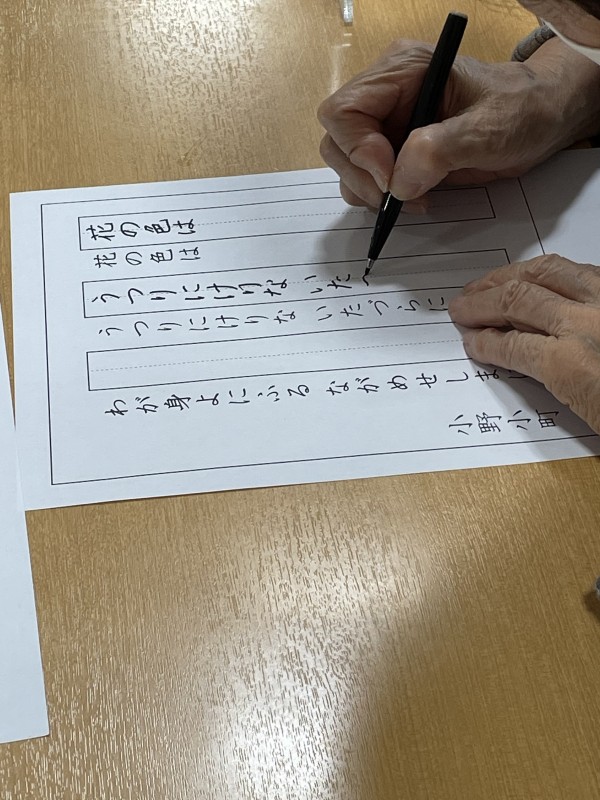 花の色は
花の色は
うつりにけりな いた
うつりにけりな いたづらに
わが身よにふる ながめせしま
小野小町